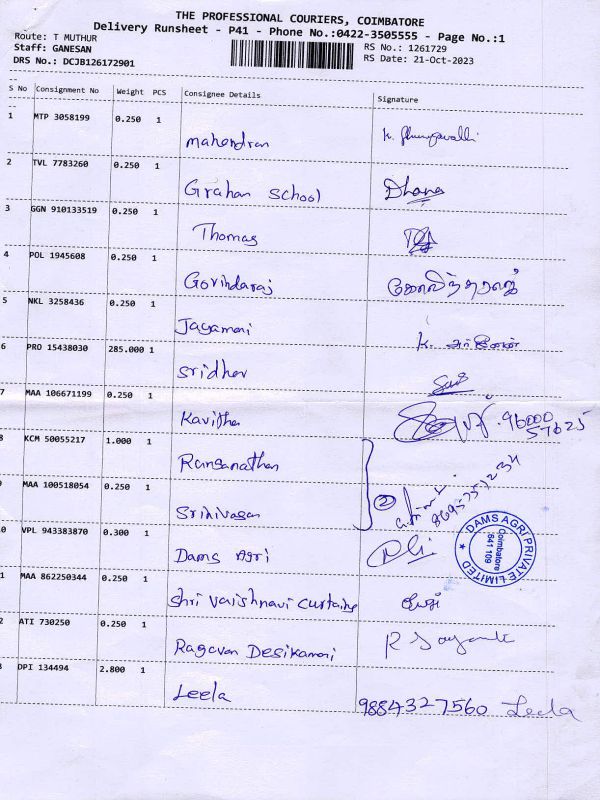 THE PROFESSIONAL COURIERS, COIMBATORE
Delivery Runsheet - P41 - Phone No.:0422-3505555 - Page No.:1
Route: T MUTHUR
RS No.: 1261729
Staff: GANESAN
RS Date: 21-Oct-2023
DRS No.: DCJB126172901
S No Consignment No Weight PCS Consignee Details Signature
1 MTP 3058199 0.250 1
Mahendran
2 TVL 7783260 0.250 1
Grahan School Dhana
3 GGN 910133519 0.250 1
Thomas
4 POL 1945608 0.250 1
Govindaraj கோவிந்தராஜ்
5 NKL 3258436 0.250 1
Jayamani K.
6 PRO 15438030 285.000 1
Sridhar
7 MAA 106671199 0.250 1
Kavitha 96000
57625
8 KCM 50055217 1.000 1
Ransanathan
MAA 100518054 0.250 1
2
Srinivasan
0 VPL 943383870 0.300 1
Dams Agri
DAMS AGRI PRIVATE LIMITED
Coimbatore
641 109
1 MAA 862250344 0.250 1
Shri Vaishnavi Curtains
2 ATI 730250 0.250 1
Ragavan Desikamani
3 DPI 134494 2.800 1
Leela 9884327560 Leela